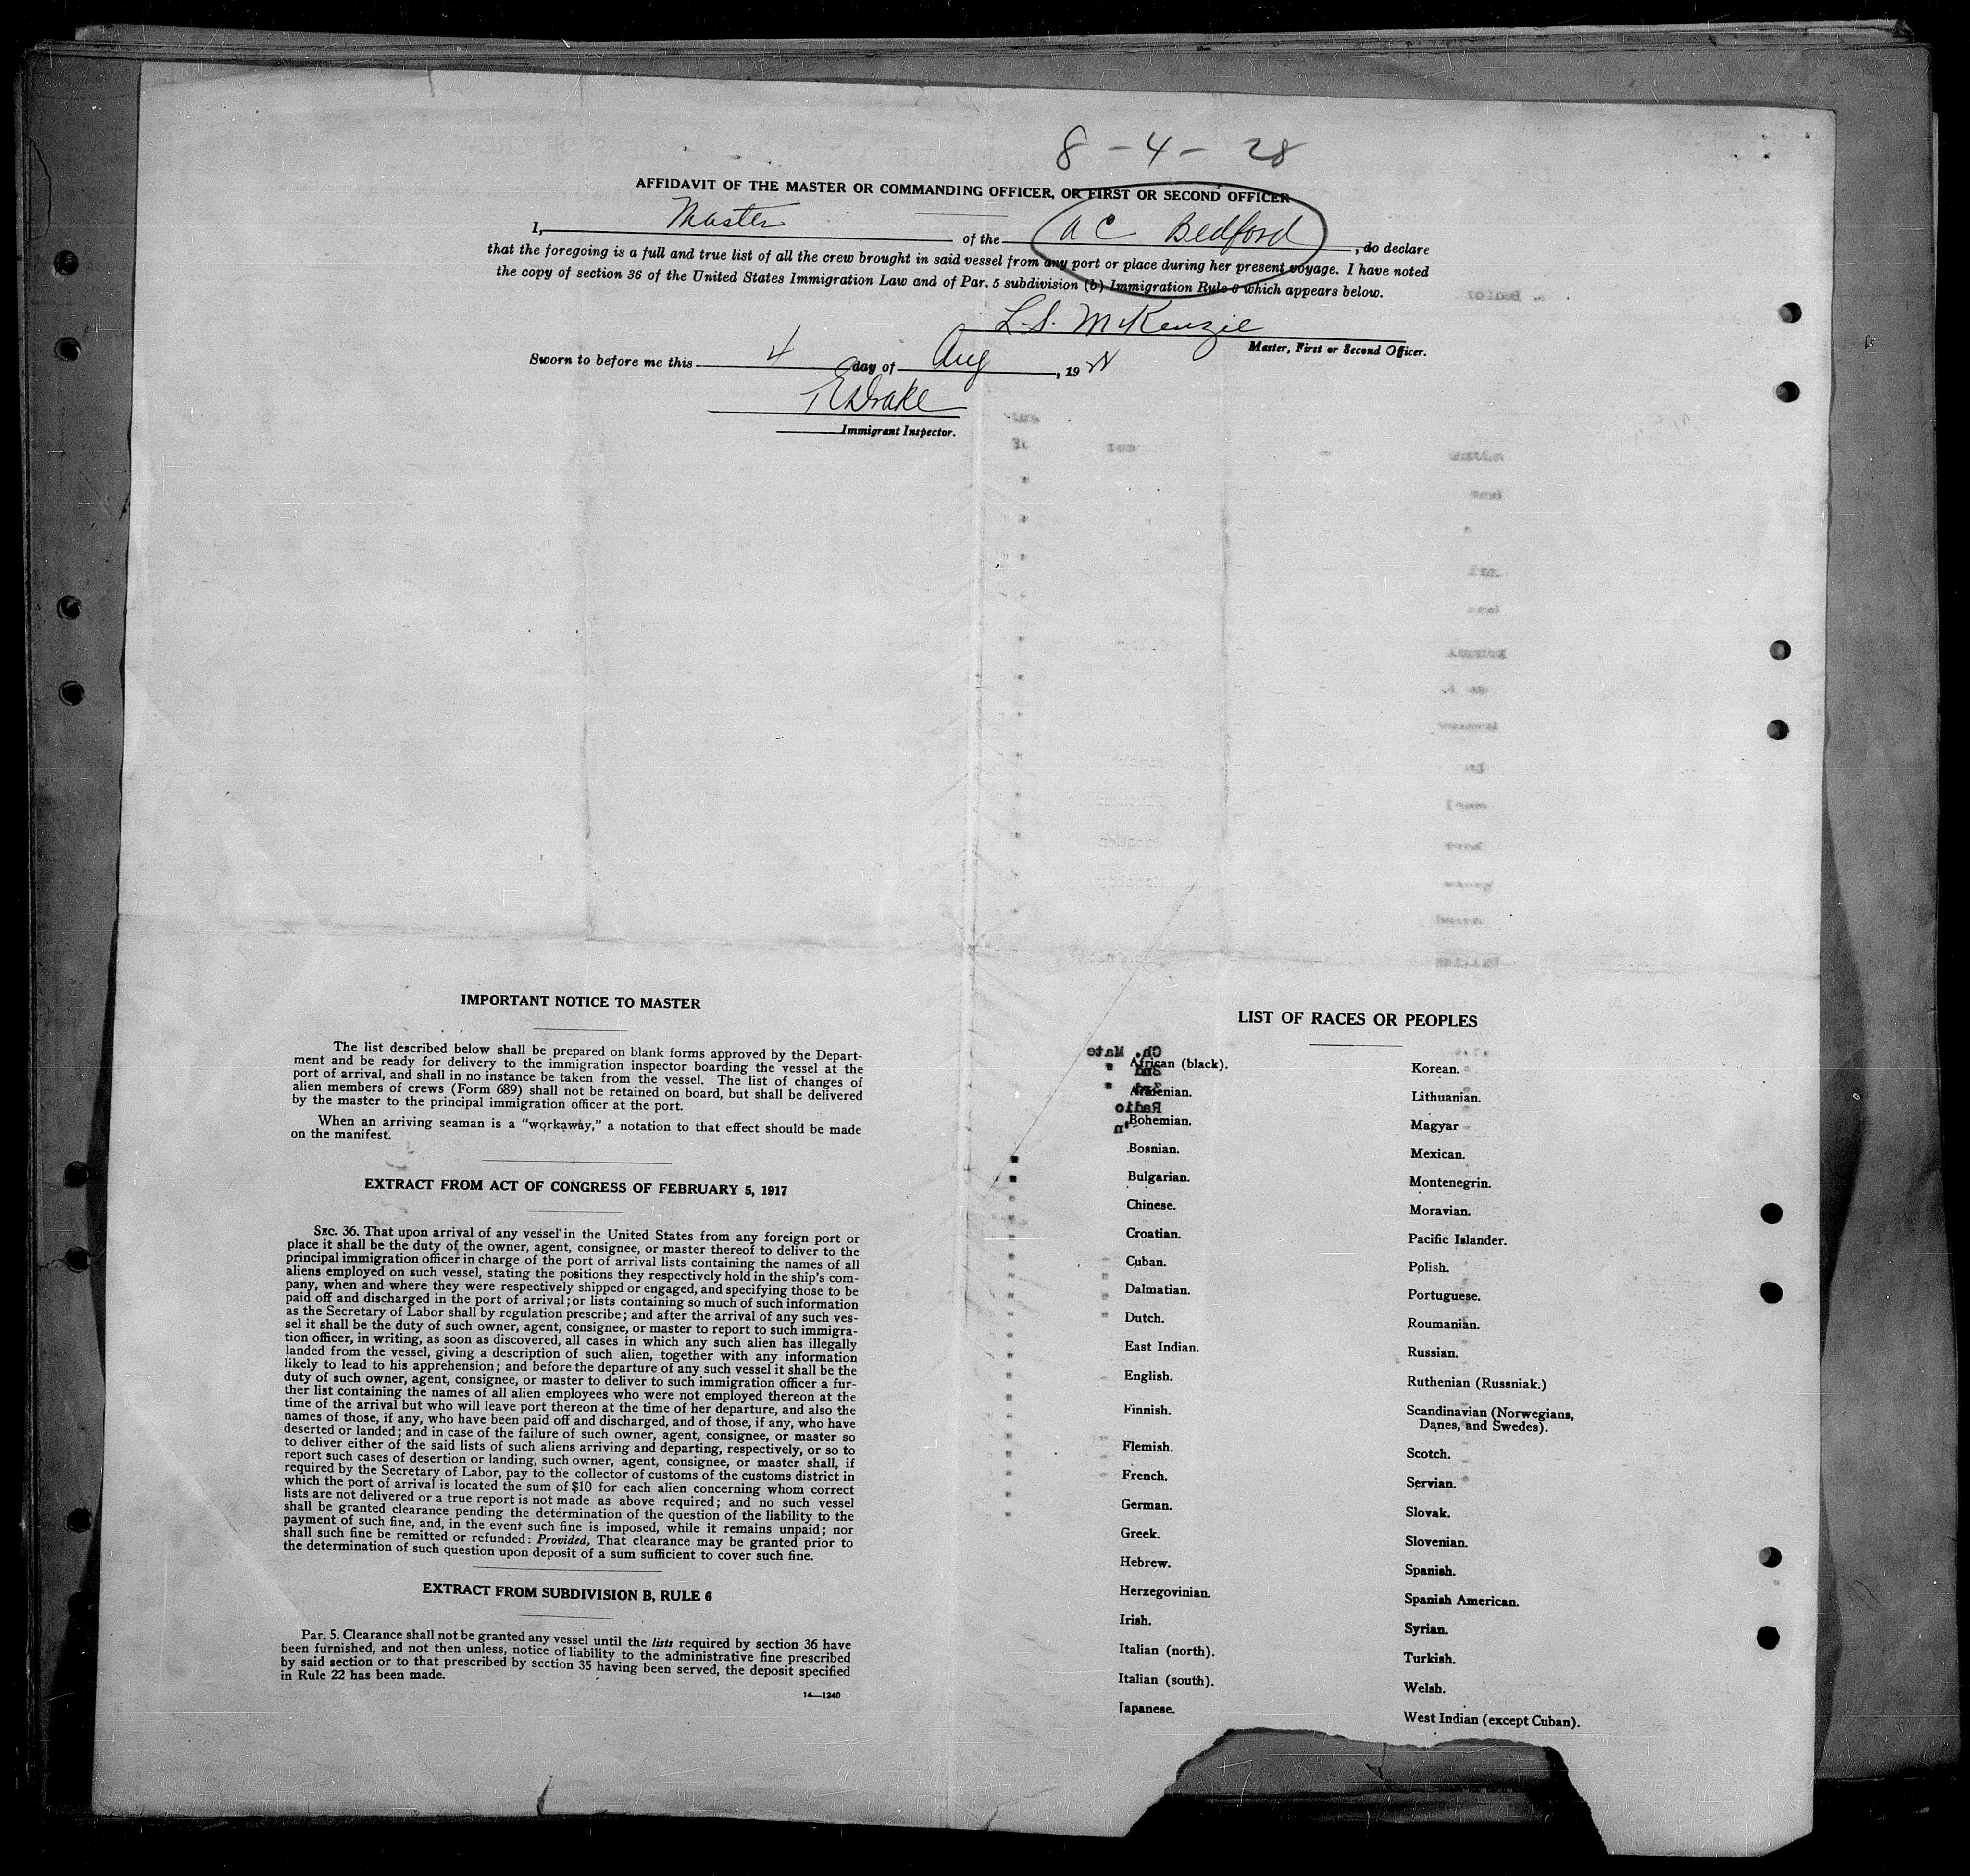 8 - 4 - 28
AFFIDAVIT OF THE MASTER OR COMMANDING OFFICER, OR FIRST OR SECOND OFFICER
I, Master of the A C Bedford, do declare
that the foregoing is a full and true list of all the crew brought in said vessel from any port or place during her present voyage. I have noted
the copy of section 36 of the United States Immigration Law and of Par. 5 subdivision (b) Immigration Rule 6 which appears below.
L. S. McKenzie
Master, First or Second Officer.
Sworn to before me this 4 day of Aug, 19 28
Drake
Immigrant Inspector.
IMPORTANT NOTICE TO MASTER
The list described below shall be prepared on blank forms approved by the Depart-
ment and be ready for delivery to the immigration inspector boarding the vessel at the
port of arrival, and shall in no instance be taken from the vessel. The list of changes of
alien members of crews (Form 689) shall not be retained on board, but shall be delivered
by the master to the principal immigration officer at the port.
When an arriving seaman is a "workaway," a notation to that effect should be made
on the manifest.
EXTRACT FROM ACT OF CONGRESS OF FEBRUARY 5, 1917
SEC. 36. That upon arrival of any vessel in the United States from any foreign port or
place it shall be the duty of the owner, agent, consignee, or master thereof to deliver to the
principal immigration officer in charge of the port of arrival lists containing the names of all
aliens employed on such vessel, stating the positions they respectively hold in the ship's com-
pany, when and where they were respectively shipped or engaged, and specifying those to be
paid off and discharged in the port of arrival; or lists containing so much of such information
as the Secretary of Labor shall by regulation prescribe; and after the arrival of any such ves-
sel it shall be the duty of such owner, agent, consignee, or master to report to such immigra-
tion officer, in writing, as soon as discovered, all cases in which any such alien has illegally
landed from the vessel, giving a description of such alien, together with any information
likely to lead to his apprehension; and before the departure of any such vessel it shall be the
duty of such owner, agent, consignee, or master to deliver to such immigration officer a fur-
ther list containing the names of all alien employees who were not employed thereon at the
time of the arrival but who will leave port thereon at the time of her departure, and also the
names of those, if any, who have been paid off and discharged, and of those, if any, who have
deserted or landed; and in case of the failure of such owner, agent, consignee, or master so
to deliver either of the said lists of such aliens arriving and departing, respectively, or so to
report such cases of desertion or landing, such owner, agent, consignee, or master shall, if
required by the Secretary of Labor, pay to the collector of customs of the customs district in
which the port of arrival is located the sum of $10 for each alien concerning whom correct
lists are not delivered or a true report is not made as above required; and no such vessel
shall be granted clearance pending the determination of the question of the liability to the
payment of such fine, and, in the event such fine is imposed, while it remains unpaid; nor
shall such fine be remitted or refunded: Provided, That clearance may be granted prior to
the determination of such question upon deposit of a sum sufficient to cover such fine.
EXTRACT FROM SUBDIVISION B, RULE 6
Par. 5. Clearance shall not be granted any vessel until the lists required by section 36 have
been furnished, and not then unless, notice of liability to the administrative fine prescribed
by said section or to that prescribed by section 35 having been served, the deposit specified
in Rule 22 has been made.
14—1240
LIST OF RACES OR PEOPLES
African (black).
Armenian.
Bohemian.
Bosnian.
Bulgarian.
Chinese.
Croatian.
Cuban.
Dalmatian.
Dutch.
East Indian.
English.
Finnish.
Flemish.
French.
German.
Greek.
Hebrew.
Herzegovinian.
Irish.
Italian (north).
Italian (south).
Japanese.
Korean.
Lithuanian.
Magyar
Mexican.
Montenegrin.
Moravian.
Pacific Islander.
Polish.
Portuguese.
Roumanian.
Russian.
Ruthenian (Russniak.)
Scandinavian (Norwegians,
Danes, and Swedes).
Scotch.
Servian.
Slovak.
Slovenian.
Spanish.
Spanish American.
Syrian.
Turkish.
Welsh.
West Indian (except Cuban).